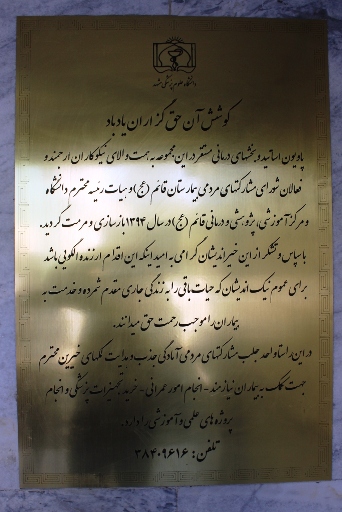 دانشگاه علوم پزشکی مشهد
کوشش آن حق گزاران یاد باد
پاویون اساتید و بخشهای درمانی مستقر در این مجموعه به همت والای نیکوکاران ارجمند و
فعالان شورای مشارکتهای مردمی بیمارستان قائم (عج) و هیات رئیسه محترم دانشگاه
و مرکز آموزشی، پژوهشی و درمانی قائم (عج) در سال ۱۳۹۴ بازسازی و مرمت گردید.
با سپاس و تشکر از این خیراندیشان گرامی به امید اینکه این اقدام ارزنده الگویی باشد
برای عموم نیک اندیشان که حیات باقی را به زندگی جاری مقدم شمرده و خدمت به
بیماران را موجب رحمت حق میدانند.
در این راستا واحد جلب مشارکتهای مردمی آمادگی جذب و هدایت کمکهای خیرین محترم
جهت کمک به بیماران نیازمند - انجام امور عمرانی - خرید تجهیزات پزشکی و انجام
پروژه های علمی و آموزشی را دارد.
تلفن: ۳۸۴۰۹۶۱۶